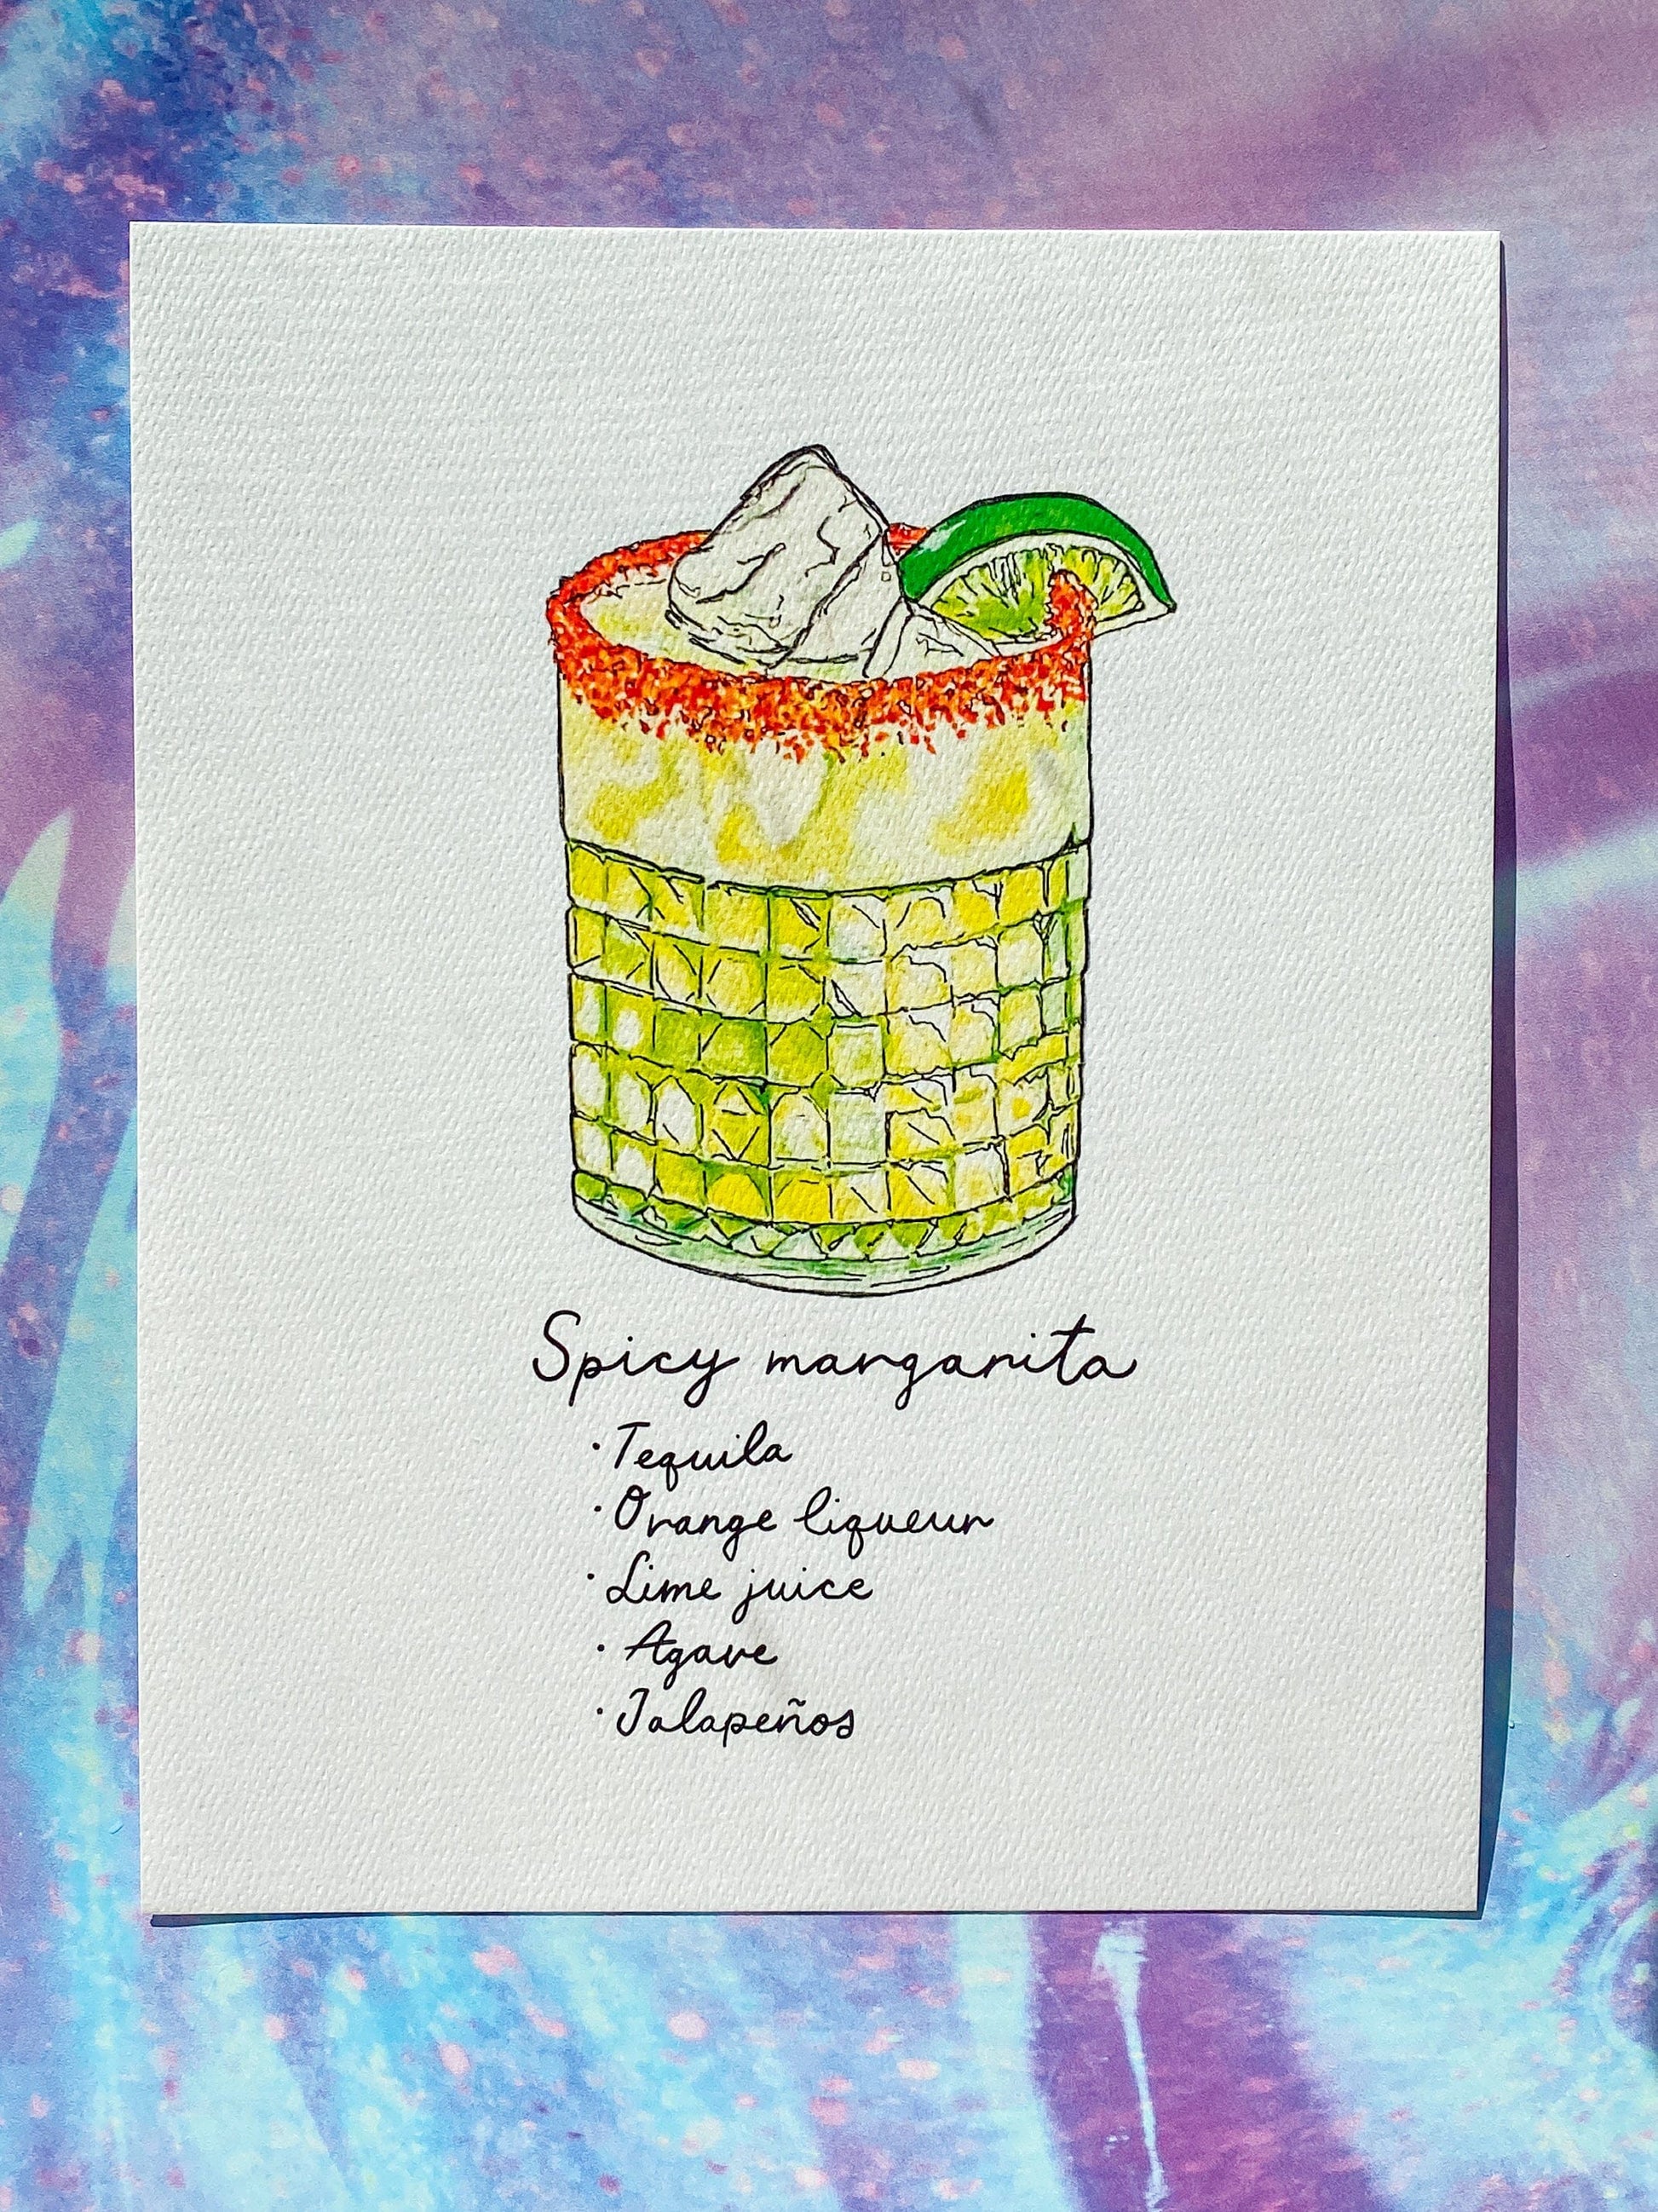 Spicy margarita
· Tequila
· Orange liqueur
· Lime juice
· Agave
· Jalapeños